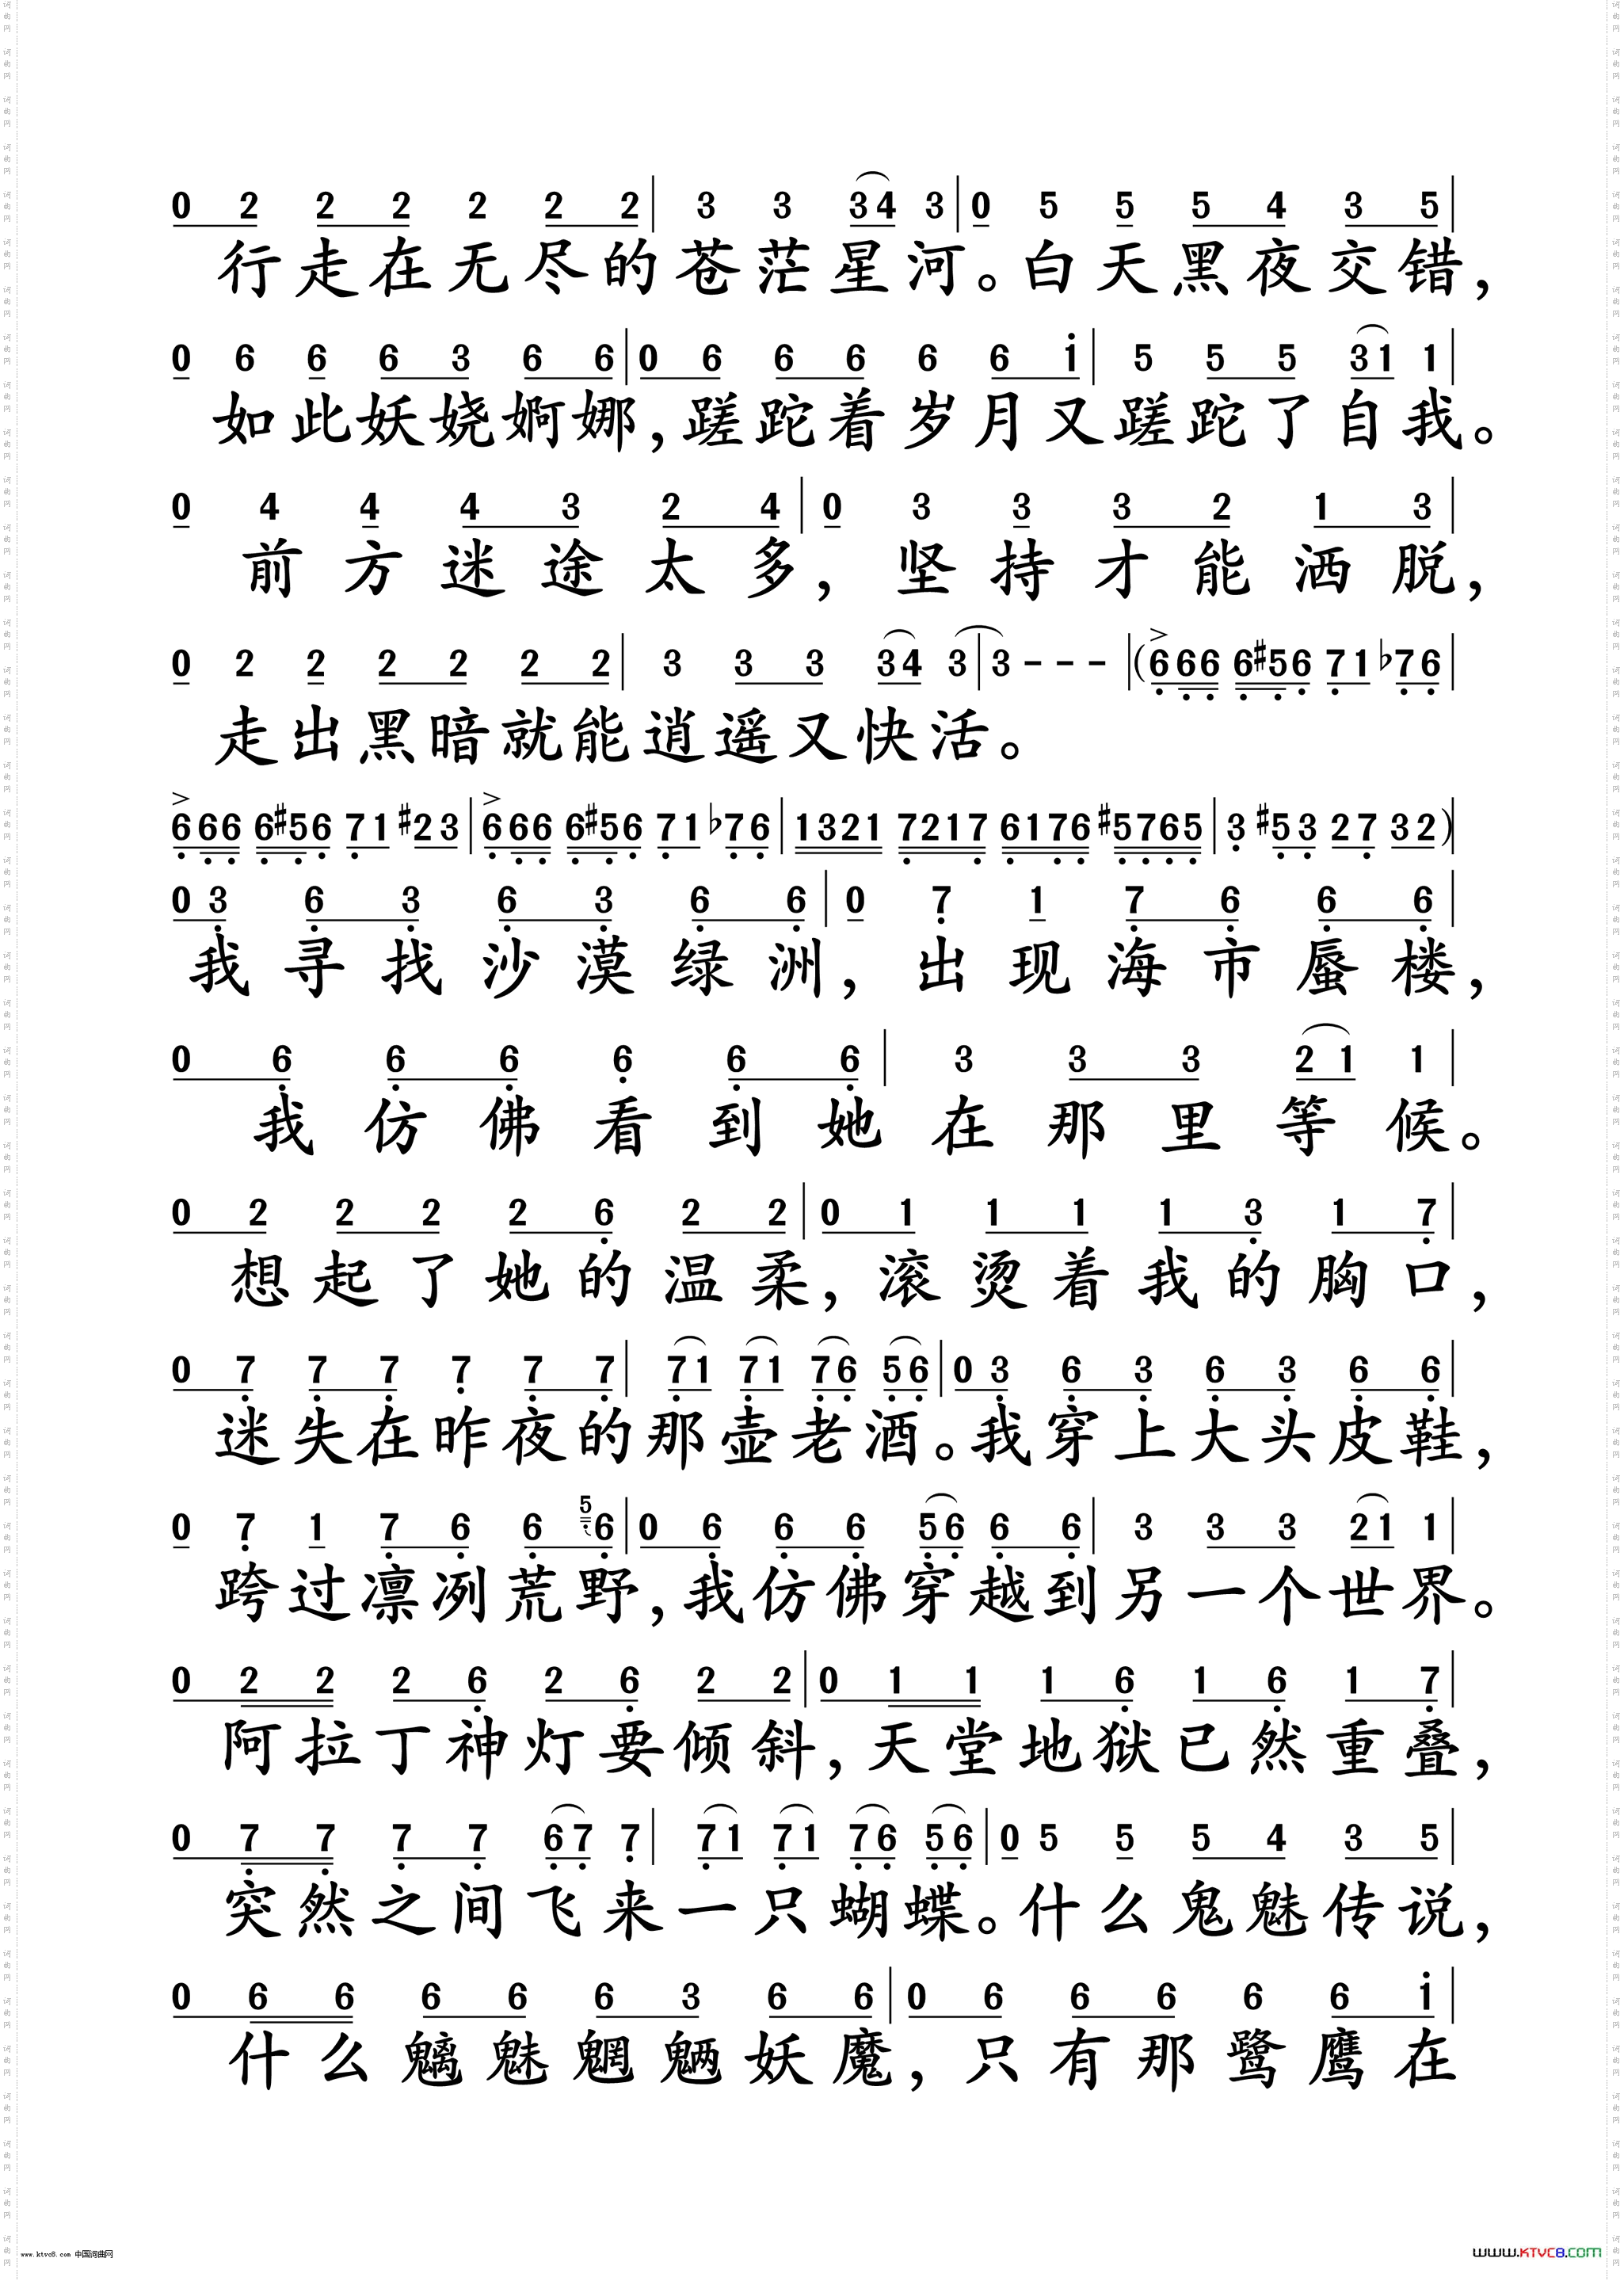 0 2 2 2 2 2 2 | 3 3 34 3 | 0 5 5 5 4 3 5 |
行走在无尽的苍茫星河。白天黑夜交错，
0 6 6 6 3 6 6 | 0 6 6 6 6 6 i | 5 5 5 31 1 |
如此妖娆婀娜，蹉跎着岁月又蹉跎了自我。
0 4 4 4 3 2 4 | 0 3 3 3 2 1 3 |
前方迷途太多，坚持才能洒脱，
0 2 2 2 2 2 2 | 3 3 3 34 3 | 3 - - - | (666 6#56 71 b76 |
走出黑暗就能逍遥又快活。
666 6#56 71 #23 | 666 6#56 71 b76 | 1321 7217 6176 #5765 | 3 #53 27 32) |
0 3 6 3 6 3 6 6 | 0 7 1 7 6 6 6 |
我寻找沙漠绿洲，出现海市蜃楼，
0 6 6 6 6 6 6 | 3 3 3 2 1 1 |
我仿佛看到她在那里等候。
0 2 2 2 2 6 2 2 | 0 1 1 1 1 3 1 7 |
想起了她的温柔，滚烫着我的胸口，
0 7 7 7 7 7 7 | 71 71 76 56 | 0 3 6 3 6 3 6 6 |
迷失在昨夜的那壶老酒。我穿上大头皮鞋，
0 7 1 7 6 6 5 6 | 0 6 6 6 56 6 6 | 3 3 3 21 1 |
跨过凛冽荒野，我仿佛穿越到另一个世界。
0 2 2 2 6 2 6 2 2 | 0 1 1 1 6 1 6 1 7 |
阿拉丁神灯要倾斜，天堂地狱已然重叠，
0 7 7 7 7 67 7 | 71 71 76 56 | 0 5 5 5 4 3 5 |
突然之间飞来一只蝴蝶。什么鬼魅传说，
0 6 6 6 6 6 3 6 6 | 0 6 6 6 6 6 i |
什么魑魅魍魉妖魔，只有那鹭鹰在
www.ktvc8.com 中国词曲网
WWW.KTVC8.COM